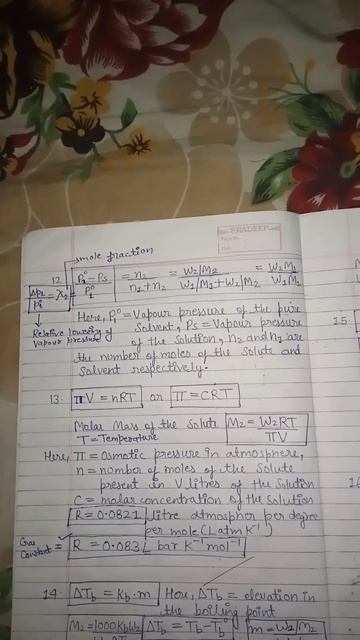 PRADEEP
Page No.
Date
mole fraction
12. Δp₁/p₁° = X₂ = P₁° - Ps / P₁° = n₂ / n₁+n₂ = W₂/M₂ / W₁/M₁+W₂/M₂ = W₂M₁ / W₁M₂
Relative lowering of
vapour pressure
Here, P₁° = Vapour pressure of the pure
solvent, Ps = Vapour pressure
of the solution, n₂ and n₁ are
the number of moles of the solute and
solvent respectively.
15.
13. πV = nRT or π = CRT
Molar Mass of the Solute M₂ = W₂RT / πV
T = Temperature
Here, π = Osmotic pressure in atmosphere,
n = number of moles of the solute
present in V litres of the solution
C = molar concentration of the solution
R = 0.0821 litre atmospher per degree
per mole (L atm K⁻¹)
Gas
Constant
R = 0.083 L bar K⁻¹ mol⁻¹
14. ΔTb = Kb.m Here, ΔTb = elevation in
the boiling point
M₂ = 1000 KbW₂ ΔTb = Tb - Tb° m = W₂/M₂